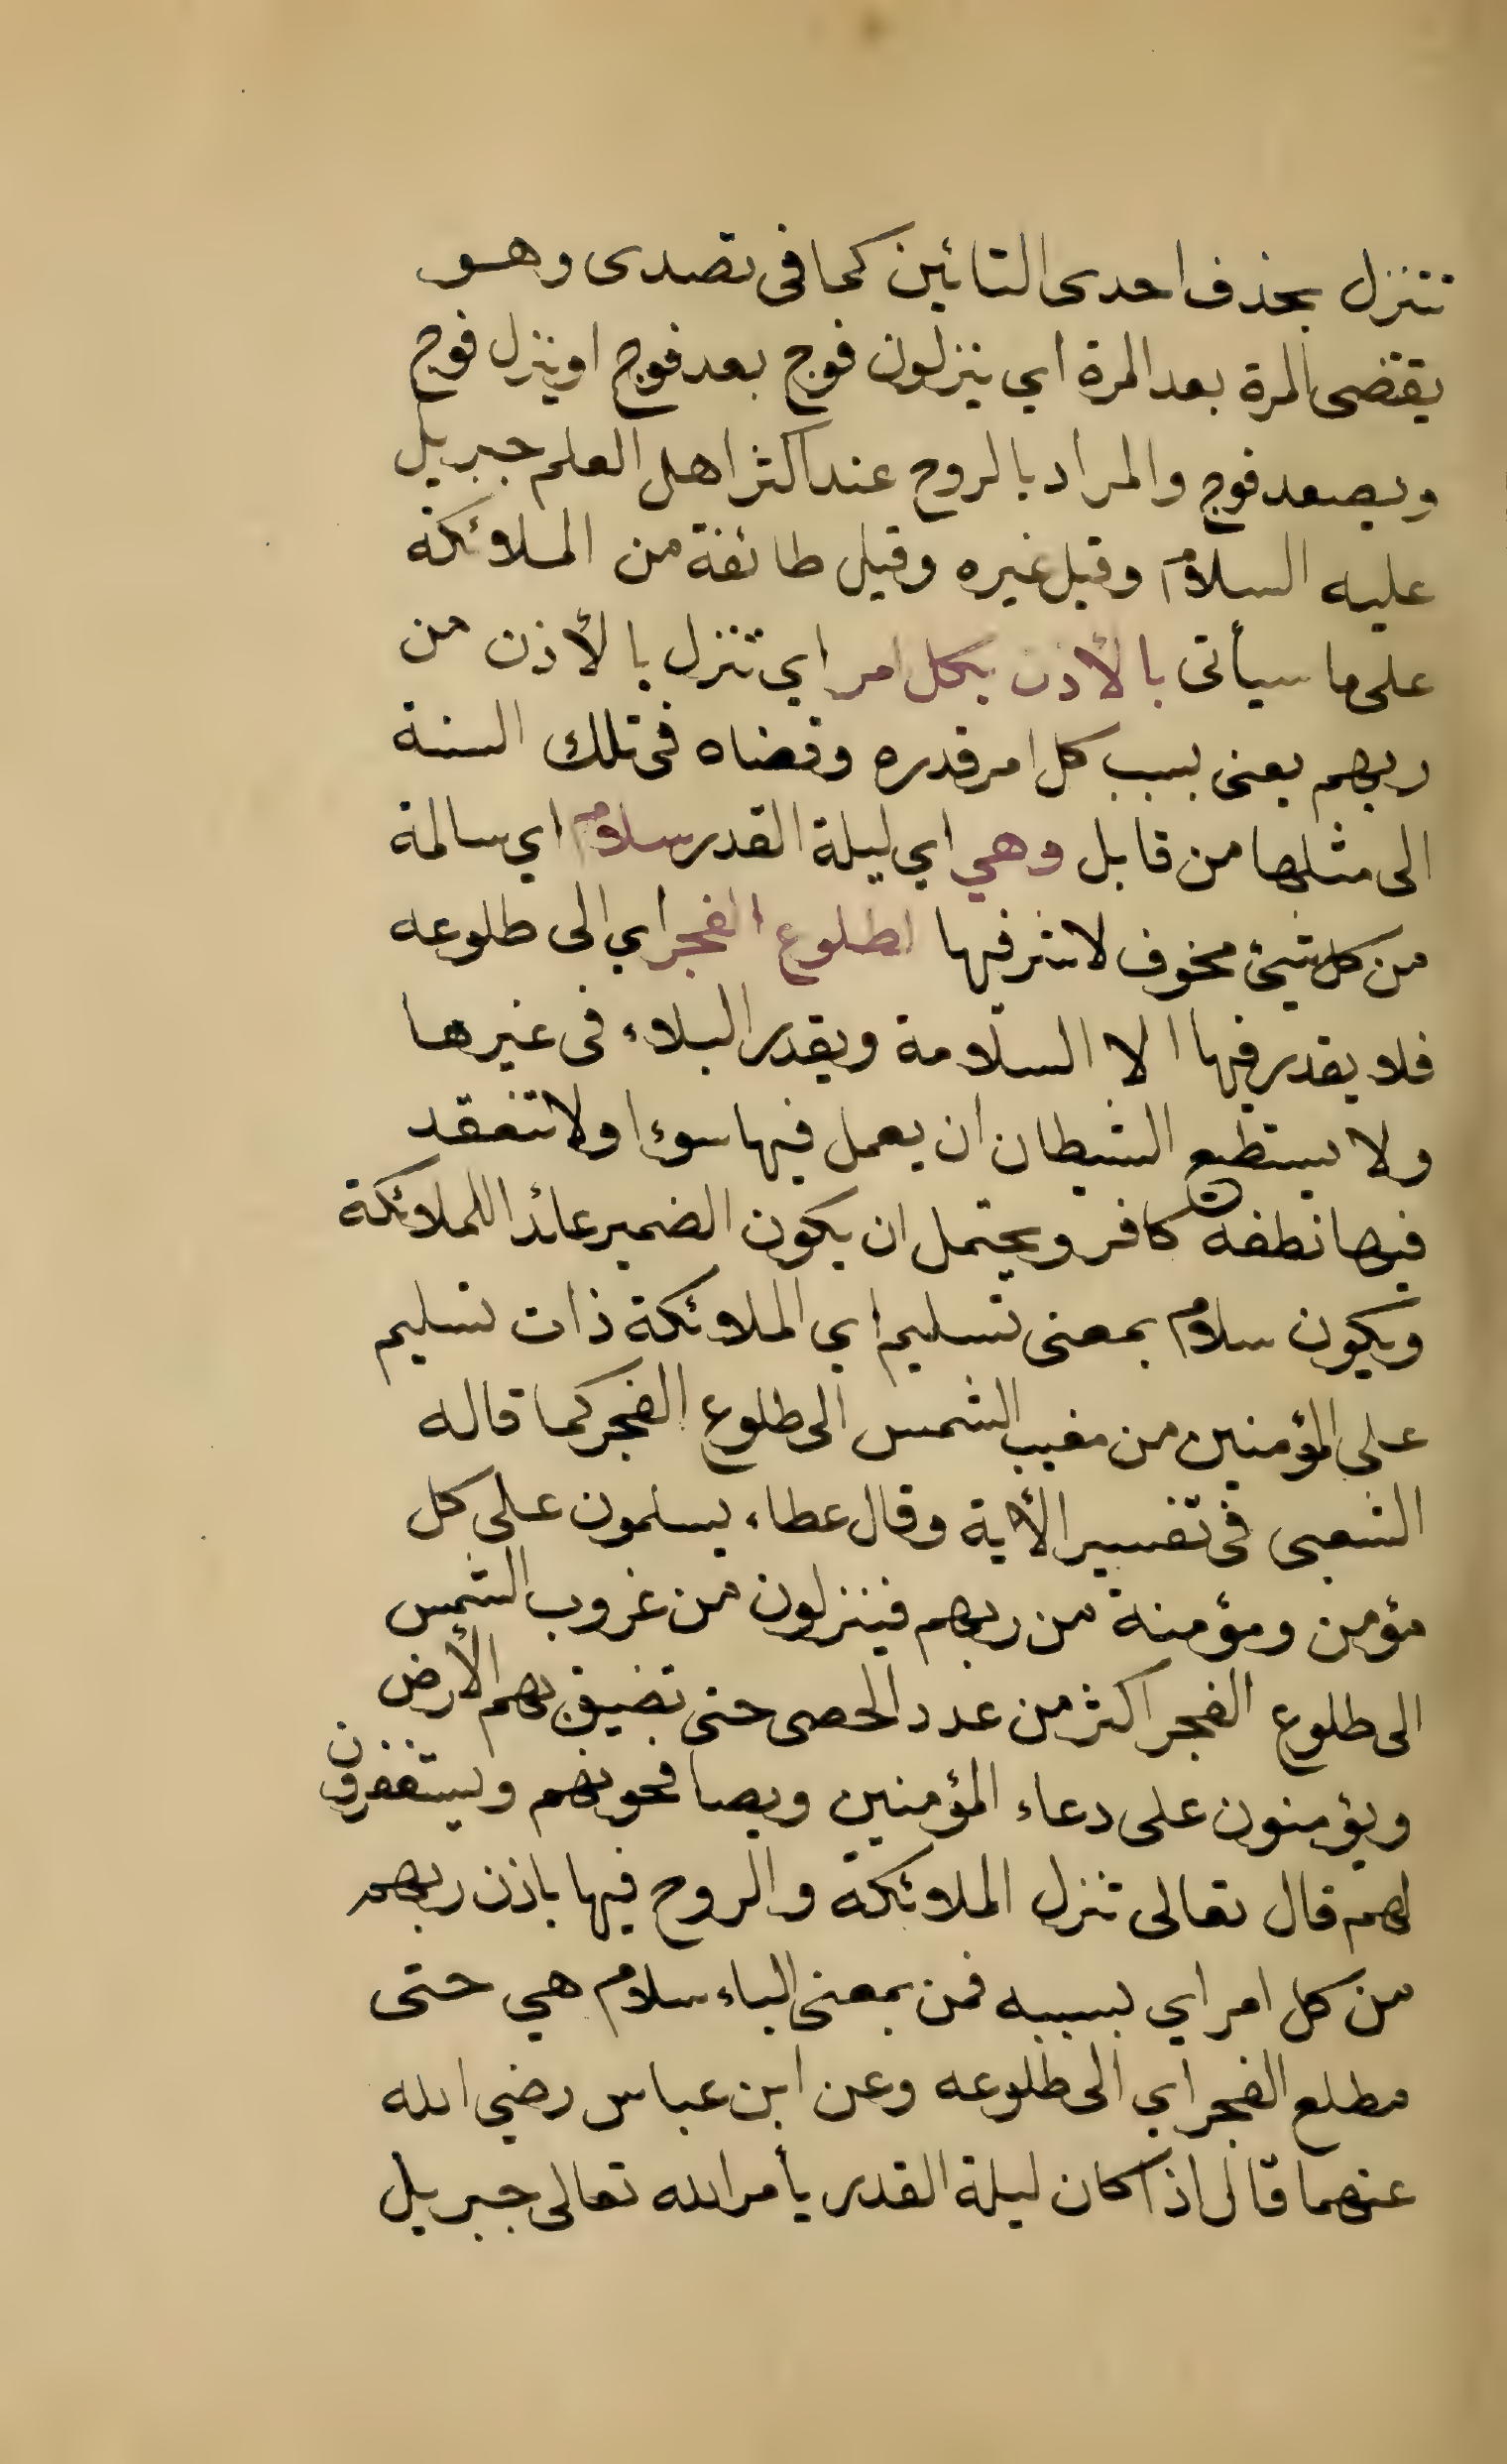 تتنزل بحذف احدى التائين كما فى تصدى وهو
يقتضى المرة بعد المرة اي ينزلون فوج بعد فوج او ينزل فوج
ويصعد فوج والمراد بالروح عند اكثر اهل العلم جبريل
عليه السلام وقيل غيره وقيل طائفة من الملائكة
على ما سيأتى بالأذن بكل امر اي تنزل بالأذن من
ربهم يعنى بسبب كل امر قدره وقضاه فى تلك السنة
الى مثلها من قابل وهي اي ليلة القدر سلام اي سالمة
من كل شيئ مخوف لا شر فيها لطلوع الفجر اي الى طلوعه
فلا يقدر فيها الا السلامة ويقدر البلاء فى غيرها
ولا يستطيع الشيطان ان يعمل فيها سوءا ولا تنعقد
فيها نطفة كافر ويحتمل ان يكون الضمير عائدا للملائكة
ويكون سلام بمعنى تسليم اي الملائكة ذات تسليم
على المؤمنين من مغيب الشمس الى طلوع الفجر كما قاله
الشعبى فى تفسير الأية وقال عطاء يسلمون على كل
مؤمن ومؤمنة من ربهم فينزلون من غروب الشمس
الى طلوع الفجر اكثر من عدد الحصى حتى تضيق بهم الأرض
ويؤمنون على دعاء المؤمنين ويصافحونهم ويستغفرون
لهم قال تعالى تنزل الملائكة والروح فيها باذن ربهم
من كل امر اي بسببه فمن بمعنى الباء سلام هي حتى
مطلع الفجر اي الى طلوعه وعن ابن عباس رضي الله
عنهما قال اذا كان ليلة القدر يأمر الله تعالى جبريل